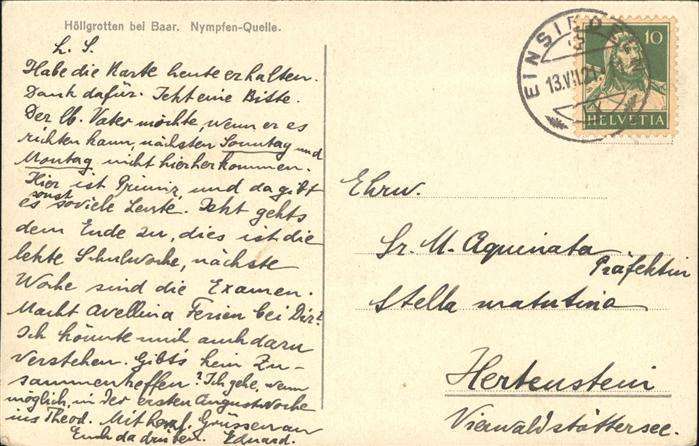 Höllgrotten bei Baar. Nympfen-Quelle.
L. S.
Habe die Karte heute erhalten.
Dank dafür. Jetzt eine Bitte.
Der lb. Vater möchte, wenn er es
richten kann, nächsten Sonntag und
Montag nicht hierherkommen.
Hier ist Primiz, und da gibt
es sonst soviele Leute. Jetzt gehts
dem Ende zu, dies ist die
letzte Schulwoche, nächste
Woche sind die Examen.
Macht Avellina Ferien bei Dir?
Ich könnte mich auch dazu
verstehen. Gibt's kein Zu-
sammentreffen? Ich gehe, wenn
möglich, in der ersten Augustwoche
ins Theod. Mit herzl. Grüssen an
Euch da drüben. Eduard.
EINSIEDELN
13.VII.21
10
HELVETIA
Ehrw.
Sr. M. Aquinata
Präfektin
Stella matutina
Hertenstein
Vierwaldstättersee.